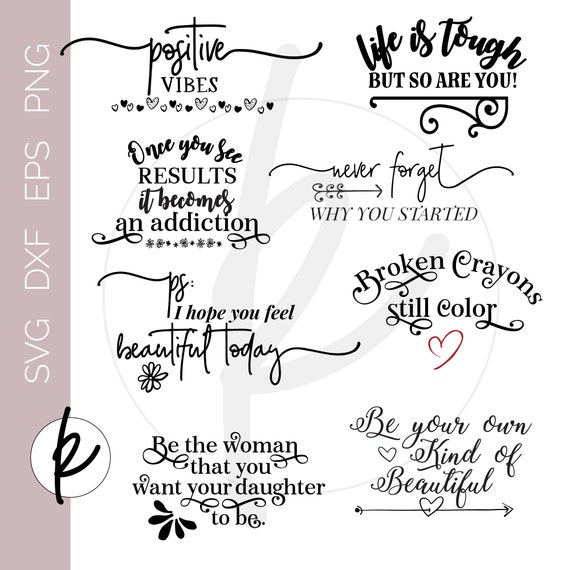 SVG DXF EPS PNG
positive
VIBES
life is tough
BUT SO ARE YOU!
Once you see
RESULTS
it becomes
an addiction
never forget
WHY YOU STARTED
ps:
I hope you feel
beautiful today
Broken Crayons
still color
Be the woman
that you
want your daughter
to be.
Be your own
Kind of
Beautiful
k